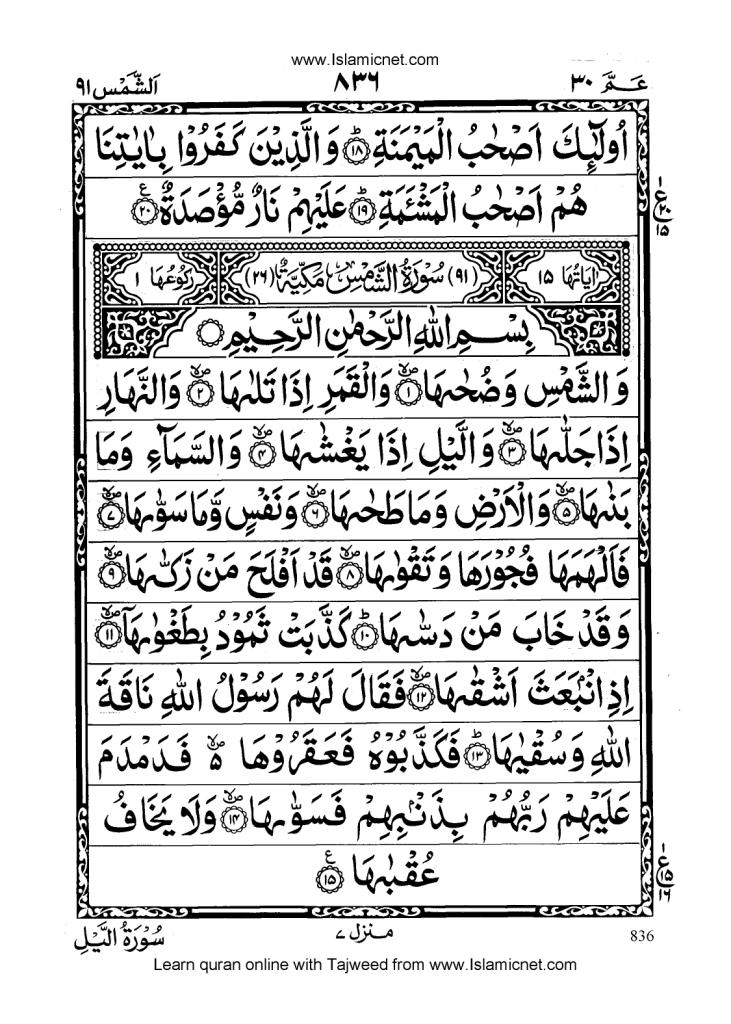 www.Islamicnet.com
عـمّ ٣٠ ٨٣٦ اَلشَّمْس ٩١
اُولٰٓئِكَ اَصْحٰبُ الْمَيْمَنَةِ ؕ﴿۱۸﴾ وَ الَّذِيْنَ كَفَرُوْا بِاٰيٰتِنَا
هُمْ اَصْحٰبُ الْمَشْئَمَةِ ؕ﴿۱۹﴾ عَلَيْهِمْ نَارٌ مُّؤْصَدَةٌ ﴿۲۰﴾ ع
ع ٢٠ ١٥
اٰيَاتُهَا ١٥ (٩١) سُوْرَةُ الشَّمْسِ مَكِّيَّةٌ (٢٦) رَكُوْعُهَا ١
بِسْمِ اللّٰهِ الرَّحْمٰنِ الرَّحِيْمِ
وَ الشَّمْسِ وَ ضُحٰىهَا ﴿۱﴾ وَ الْقَمَرِ اِذَا تَلٰىهَا ﴿۲﴾ وَ النَّهَارِ
اِذَا جَلّٰىهَا ﴿۳﴾ وَ الَّيْلِ اِذَا يَغْشٰىهَا ﴿۴﴾ وَ السَّمَآءِ وَ مَا
بَنٰىهَا ﴿۵﴾ وَ الْاَرْضِ وَ مَا طَحٰىهَا ﴿۶﴾ وَ نَفْسٍ وَّ مَا سَوّٰىهَا ﴿۷﴾
فَاَلْهَمَهَا فُجُوْرَهَا وَ تَقْوٰىهَا ﴿۸﴾ قَدْ اَفْلَحَ مَنْ زَكّٰىهَا ﴿۹﴾
وَ قَدْ خَابَ مَنْ دَسّٰىهَا ؕ﴿۱۰﴾ كَذَّبَتْ ثَمُوْدُ بِطَغْوٰىهَاۤ ﴿۱۱﴾
اِذِ انْۢبَعَثَ اَشْقٰىهَا ﴿۱۲﴾ فَقَالَ لَهُمْ رَسُوْلُ اللّٰهِ نَاقَةَ
اللّٰهِ وَ سُقْيٰهَا ؕ﴿۱۳﴾ فَكَذَّبُوْهُ فَعَقَرُوْهَا ۵ فَدَمْدَمَ
عَلَيْهِمْ رَبُّهُمْ بِذَنْۢبِهِمْ فَسَوّٰىهَا ﴿۱۴﴾ وَ لَا يَخَافُ
عُقْبٰهَا ﴿۱۵﴾ ع
ع ١٥ ١٦
836 منزل ٧ سُوْرَةُ الَّيْلِ
Learn quran online with Tajweed from www.Islamicnet.com